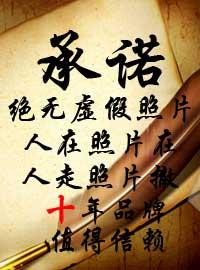 承诺
绝无虚假照片
人在照片在
人走照片撤
十年品牌
值得信赖